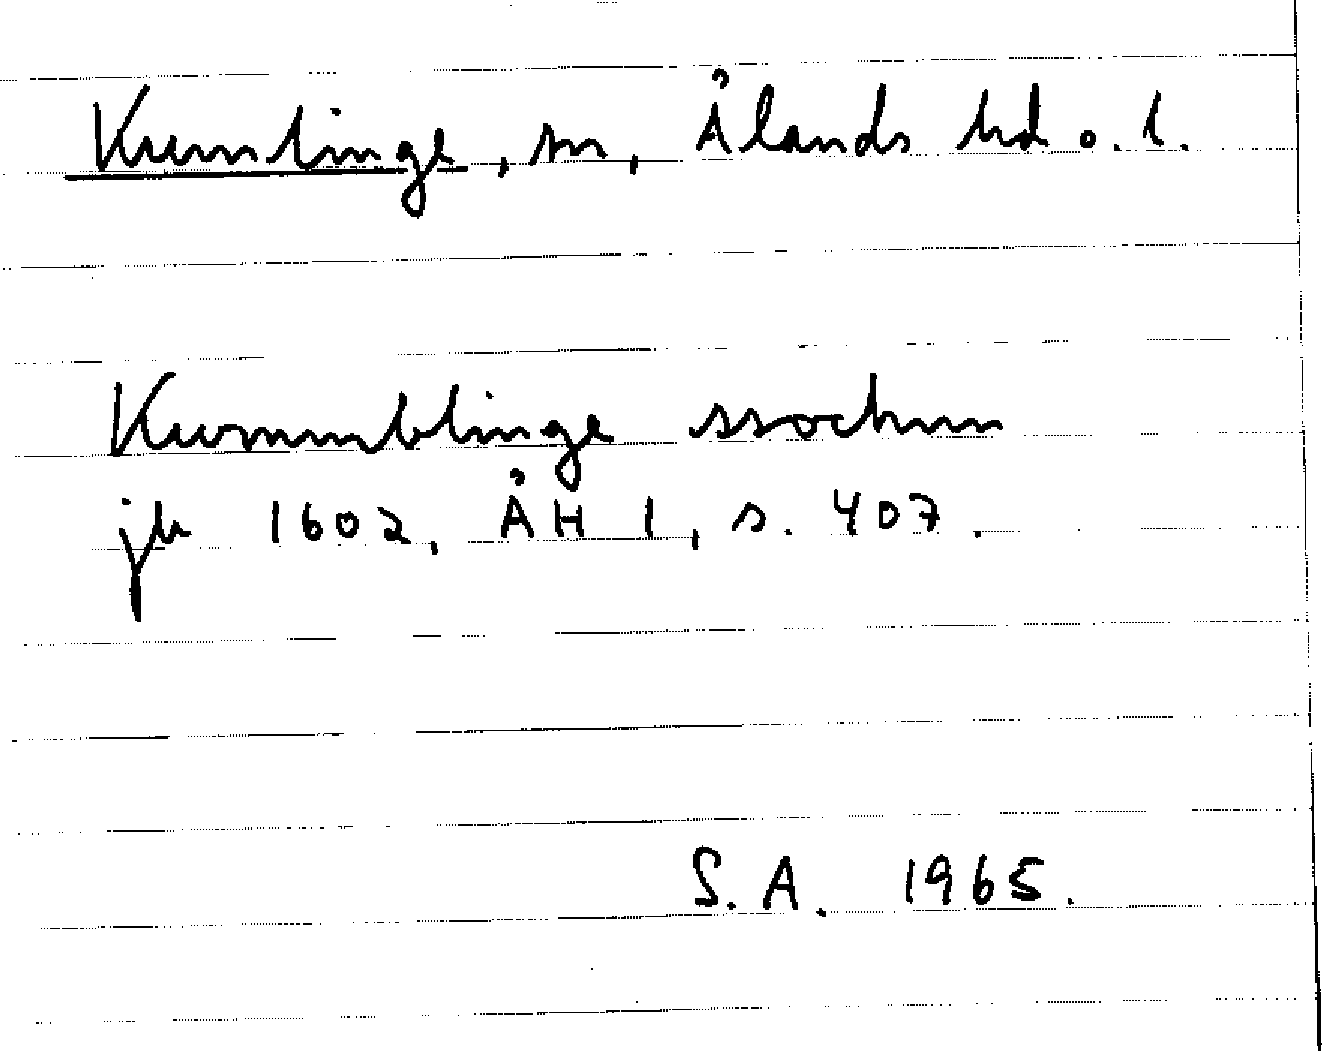 Kumlinge, sn, Ålands hd o. l.
Kummblinge ssochnn
jb 1602, ÅH 1, s. 407.
S. A. 1965.